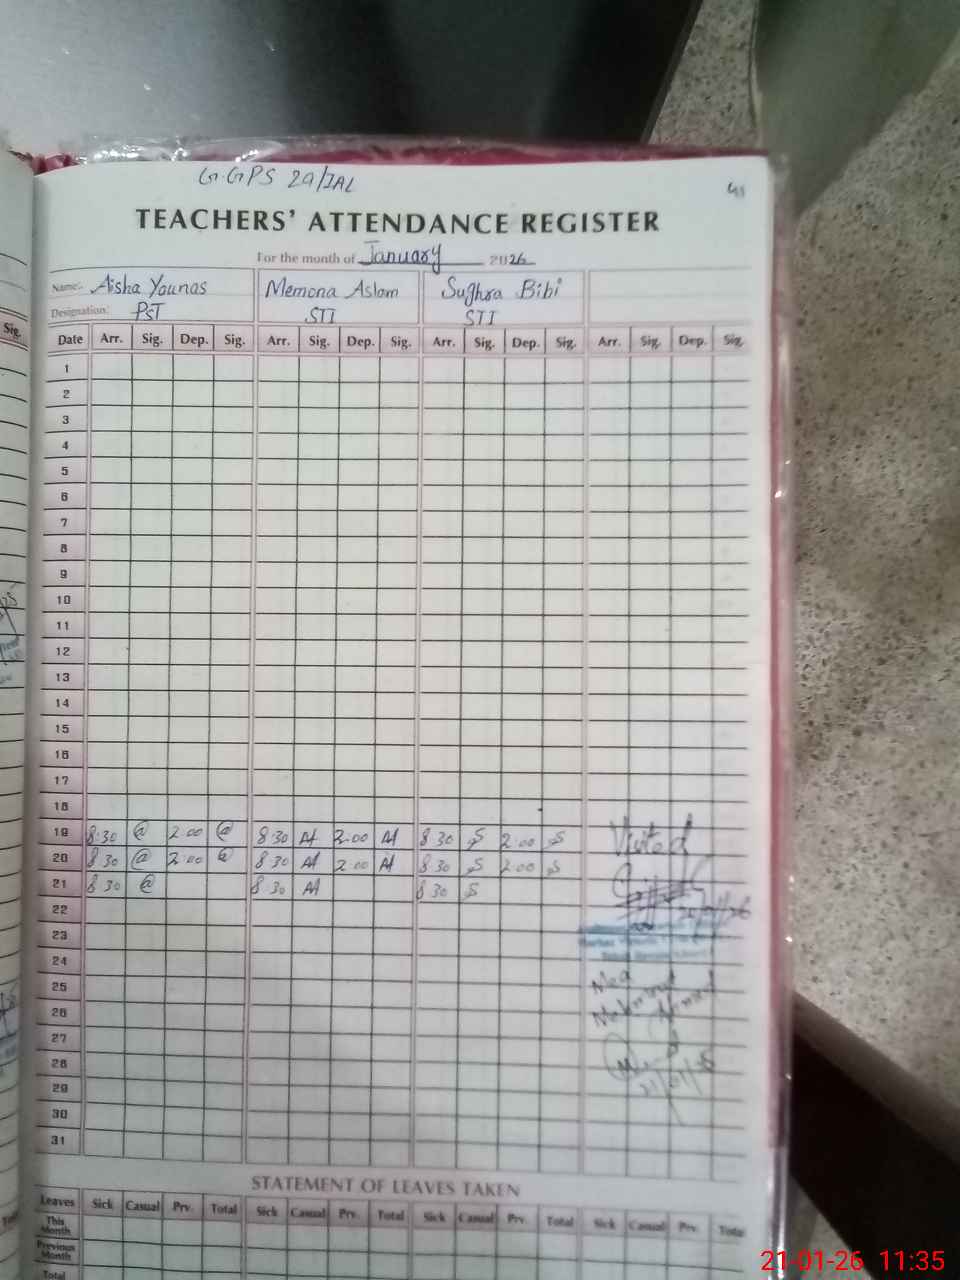 G.GPS 29/1AL
41
TEACHERS' ATTENDANCE REGISTER
For the month of January 2026
Name:. Aisha Younas Memona Aslam Sughra Bibi
Designation: PST STI STI
Sig.
Date Arr. Sig. Dep. Sig. Arr. Sig. Dep. Sig. Arr. Sig. Dep. Sig. Arr. Sig. Dep. Sig.
1
2
3
4
5
6
7
8
9
10
11
12
13
14
15
16
17
18
19 8:30 @ 2:00 @ 8:30 2:00 8 30 S 2:00 S
20 8 30 @ 2:00 @ 8 30 2:00 8 30 S 2:00 S
21 8 30 @ 8 30 8 30 S
Visited
22
20/01/26
23
24
25
26
27
28
21/01/26
29
30
31
STATEMENT OF LEAVES TAKEN
Leaves Sick Casual Prv. Total Sick Casual Prv. Total Sick Casual Prv. Total Sick Casual Prv. Total
This Month
Previous Month
Total
21-01-26 11:35